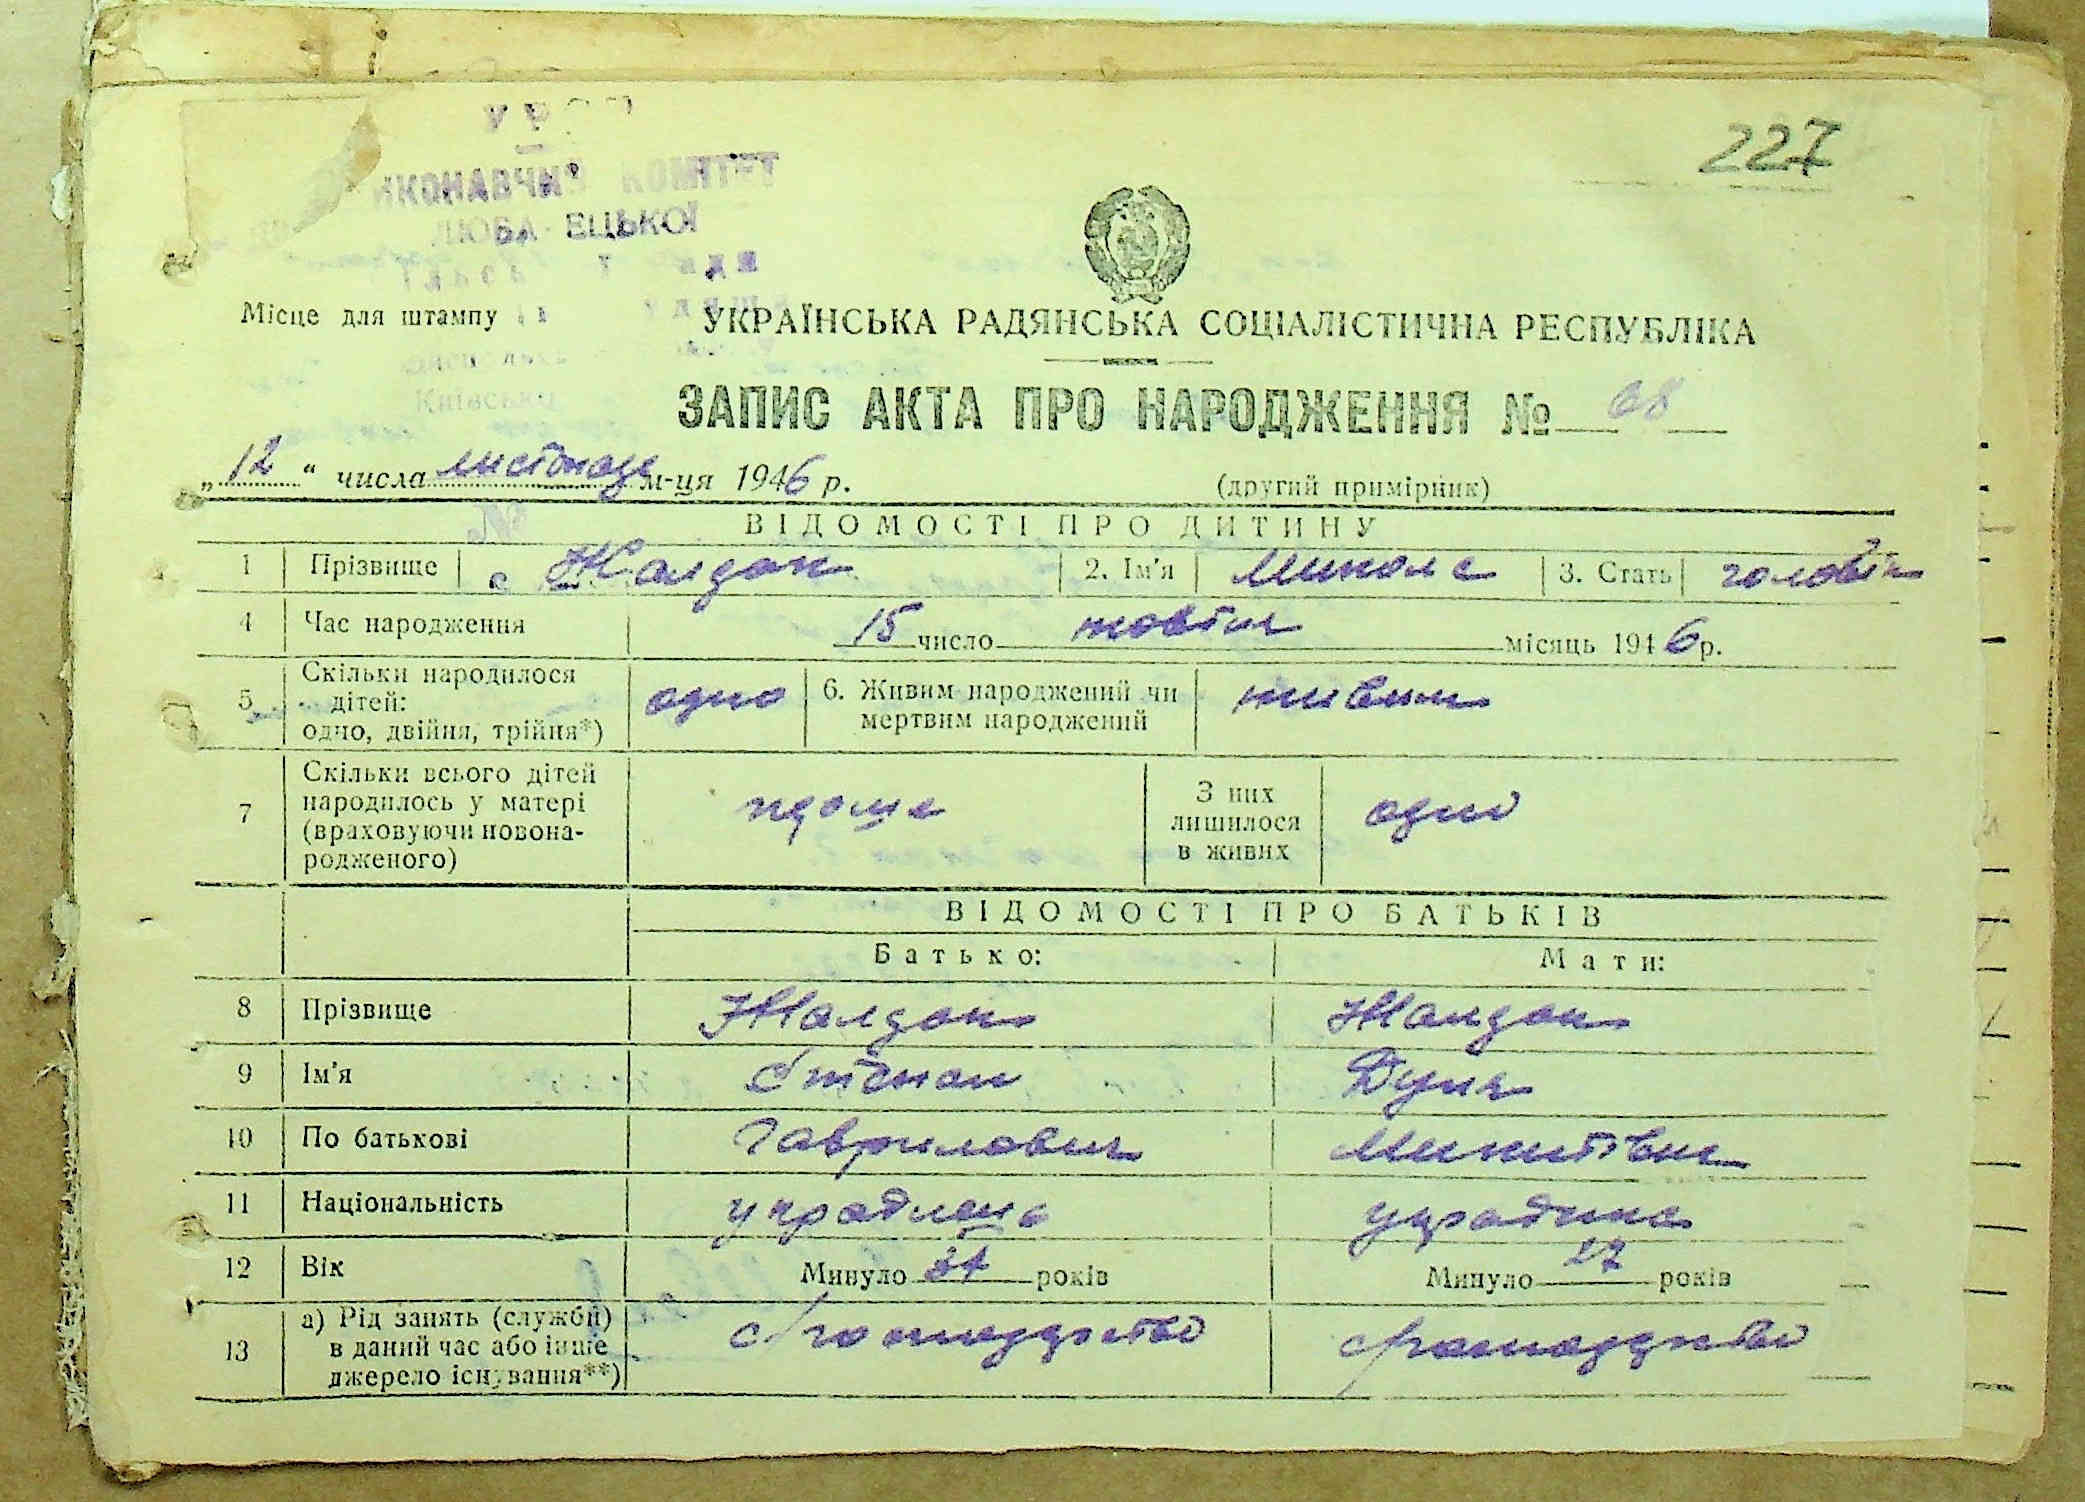 227
ИКОНАВЧИЙ КОМІТЕТ
ЛЮБА ЕЦЬКОЇ
Місце для штампу
УКРАЇНСЬКА РАДЯНСЬКА СОЦІАЛІСТИЧНА РЕСПУБЛІКА
Київсько
ЗАПИС АКТА ПРО НАРОДЖЕННЯ № 68
„12“ числа листопада м-ця 1946 р. (другий примірник)
ВІДОМОСТІ ПРО ДИТИНУ
1 Прізвище Жалдак 2. Ім'я Микола 3. Стать головік
4 Час народження 15 число жовтня місяць 1946 р.
5 Скільки народилося дітей: одно, двійня, трійня*) одно 6. Живим народжений чи мертвим народжений живим
7 Скільки всього дітей народилось у матері (враховуючи новонародженого) З них лишилося в живих одно
ВІДОМОСТІ ПРО БАТЬКІВ
Батько: Мати:
8 Прізвище Жалдак Жалдак
9 Ім'я Степан Дуня
10 По батькові Гаврилович Микитівна
11 Національність
12 Вік Минуло 34 років Минуло 27 років
13 а) Рід занять (служби) в даний час або інше джерело існування**)